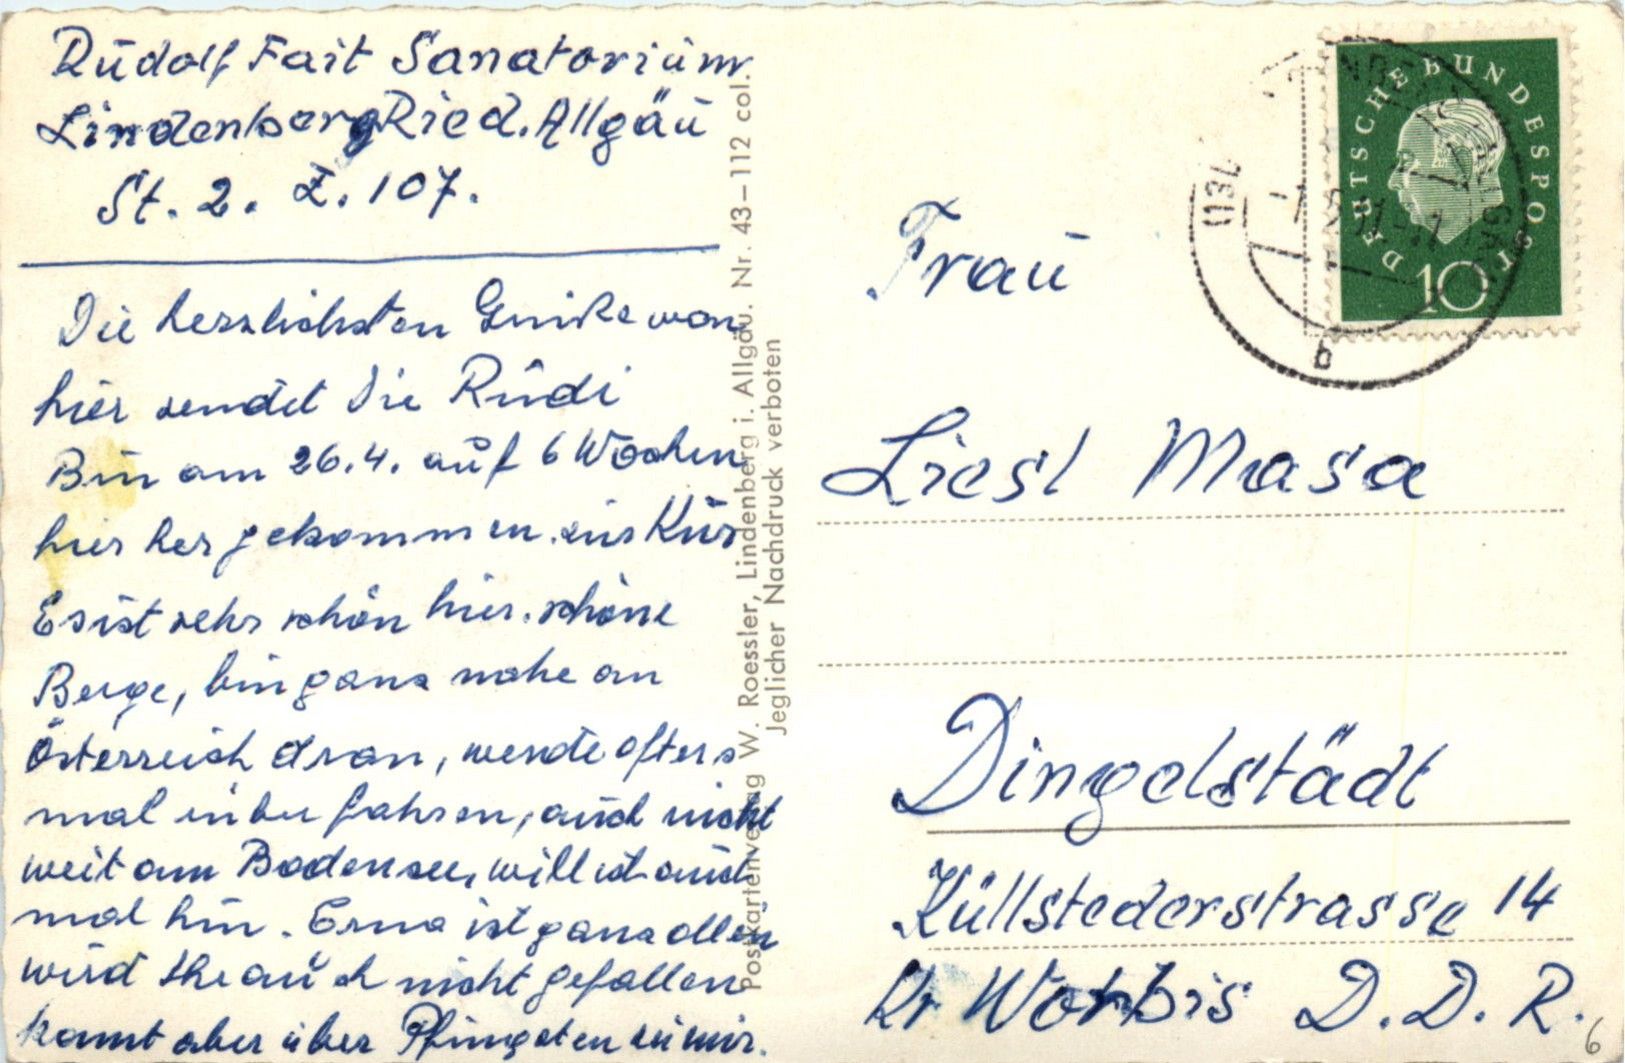 Rudolf Fait Sanatorium
Lindenberg Ried. Allgäu
St. 2. Z. 107.
Die herzlichsten Grüße von
hier sendet Die Rudi
Bin am 26.4. auf 6 Wochen
hier her gekommen zur Kur
Es ist sehr schön hier. schöne
Berge, bin ganz nahe an
Österreich dran, werde öfters
mal rüber fahren, auch nicht
weit am Bodensee, will ich auch
mal hin. Erna ist ganz allein
wird Ihr auch nicht gefallen
kommt aber über Pfingsten zu mir.
Postkartenverlag W. Roessler, Lindenberg i. Allgäu. Nr. 43–112 col.
Jeglicher Nachdruck verboten
DEUTSCHE BUNDESPOST
10
(13b
b
Frau
Liesl Masa
Dingelstädt
Küllstederstrasse 14
Kr Worbis D.D.R.
6